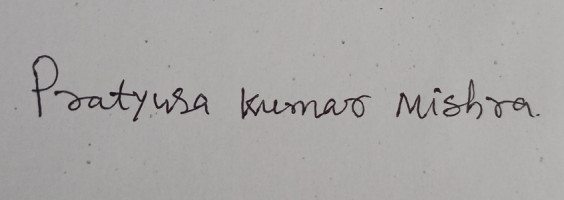 Pratyusa Kumar Mishra.